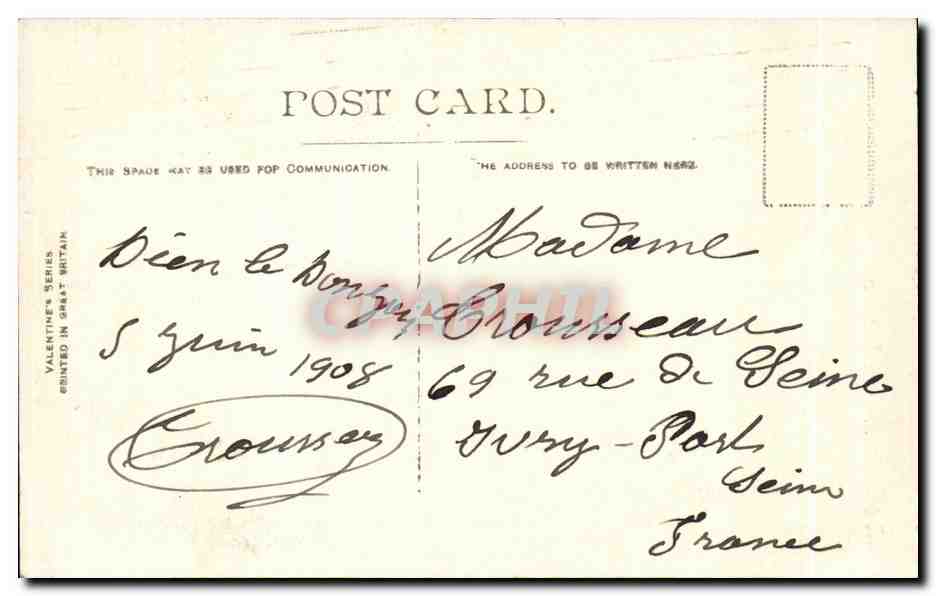 POST CARD.
THIS SPACE MAY BE USED FOR COMMUNICATION.
THE ADDRESS TO BE WRITTEN HERE.
VALENTINE'S SERIES
PRINTED IN GREAT BRITAIN
Bien le
5 juin 1908
Madame
Trousseau
69 rue de Seine
Ivry-Port
Seine
France
CPARHU